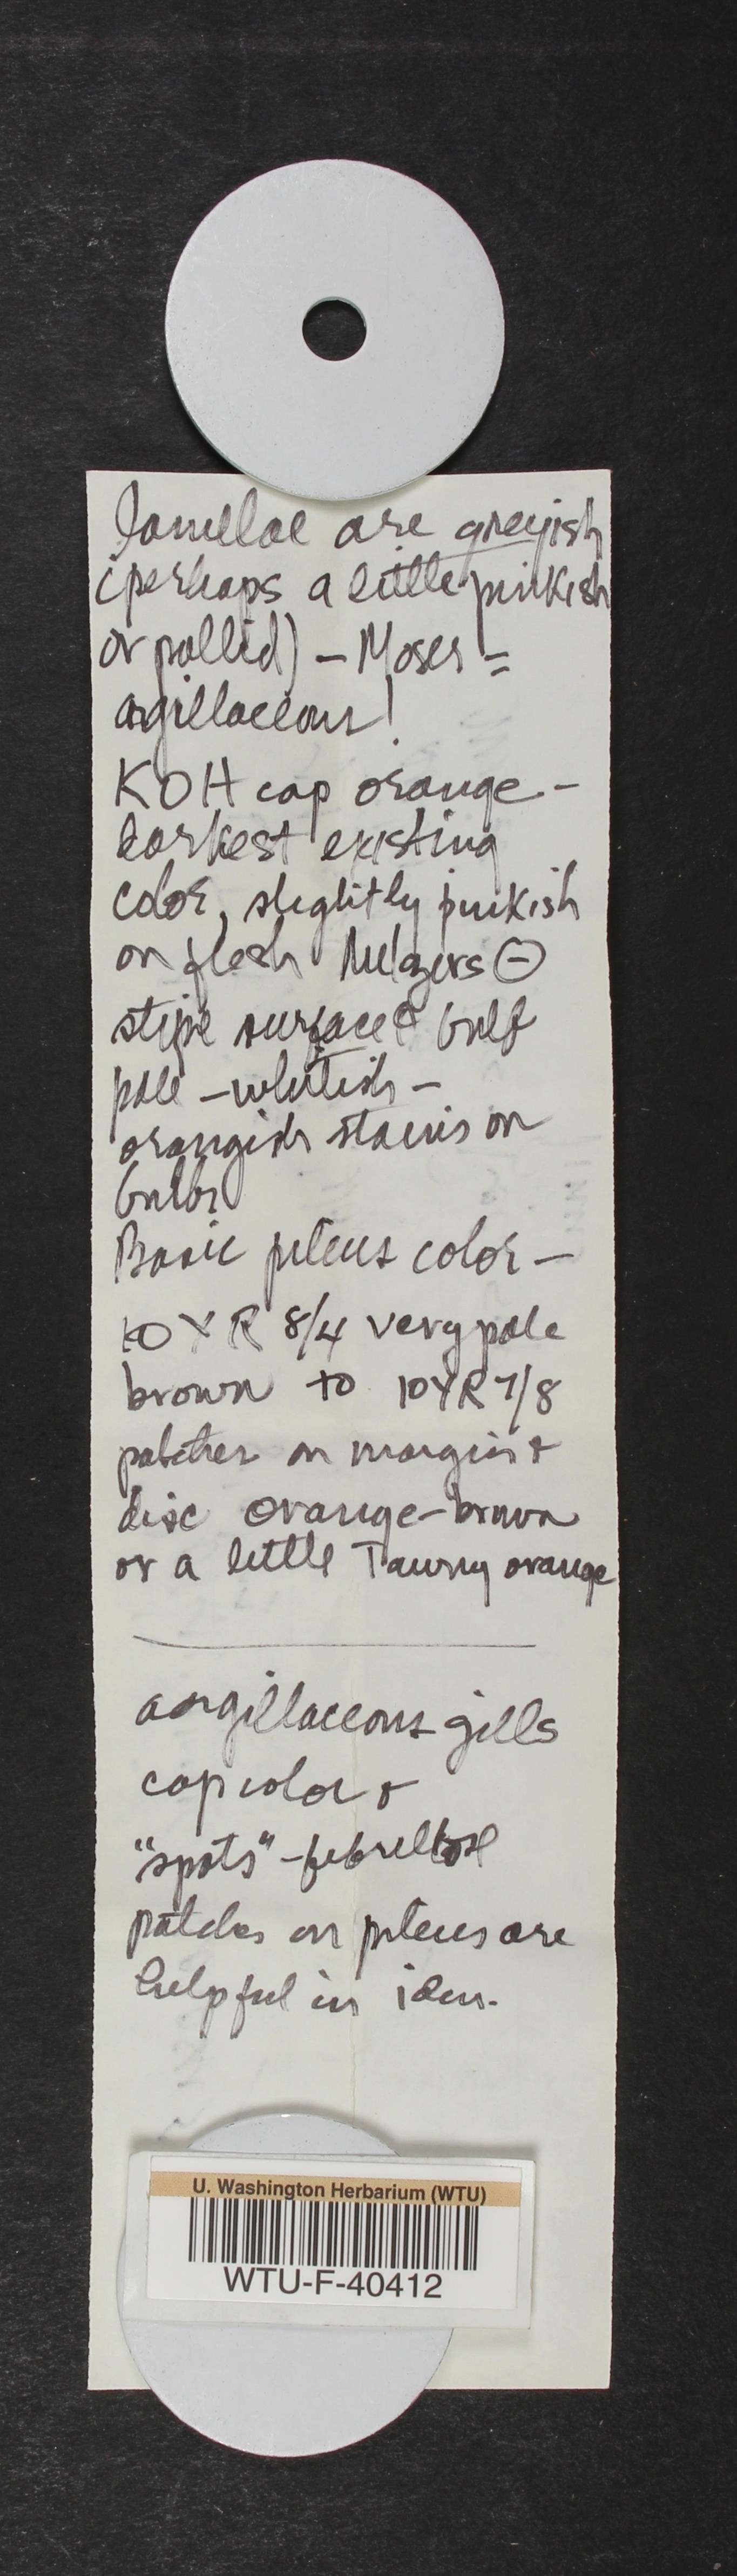 lamellae are greyish
(perhaps a little pinkish
or pallid) – Moser =
argillaceous!
KOH cap orange –
darkest existing
color, slightly pinkish
on flesh Melzers ⊖
stipe surface & bulb
pale – whitish –
orangish stains on
bulb
Basic pileus color –
10YR 8/4 very pale
brown to 10YR 7/8
patches on margin &
disc orange-brown
or a little Tawny orange
argillaceous gills
cap color &
"spots" – fibrillose
patches on pileus are
helpful in iden.
U. Washington Herbarium (WTU)
WTU-F-40412